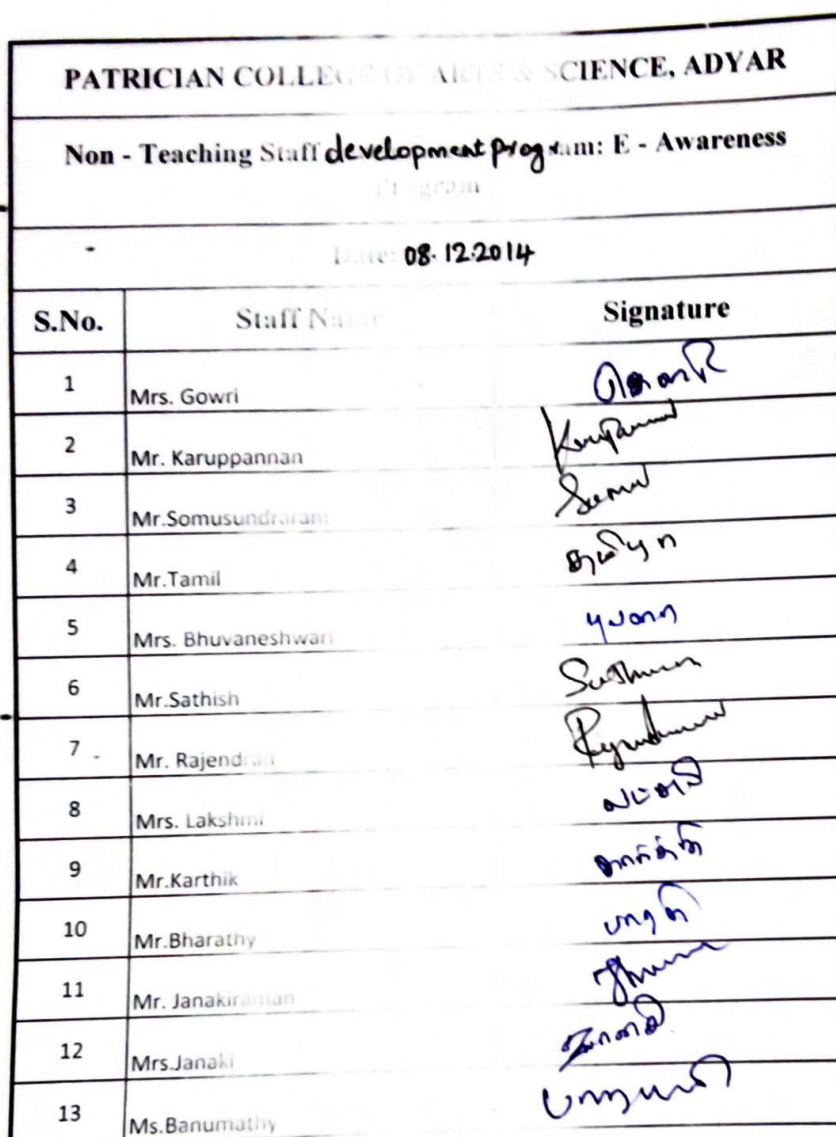 PATRICIAN COLLEGE OF ARTS & SCIENCE, ADYAR
Non - Teaching Staff development program: E - Awareness
Program
Date: 08.12.2014
S.No. Staff Name Signature
1 Mrs. Gowri கௌரி
2 Mr. Karuppannan
3 Mr.Somusundraram
4 Mr.Tamil
5 Mrs. Bhuvaneshwari
6 Mr.Sathish
7 Mr. Rajendran
8 Mrs. Lakshmi
9 Mr.Karthik கார்த்தி
10 Mr.Bharathy பாரதி
11 Mr. Janakiraman
12 Mrs.Janaki ஜானகி
13 Ms.Banumathy பானுமதி